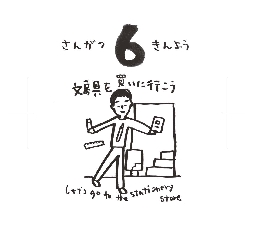 さんがつ 6 きんよう
文具を買いに行こう
Let's go to the stationery
store